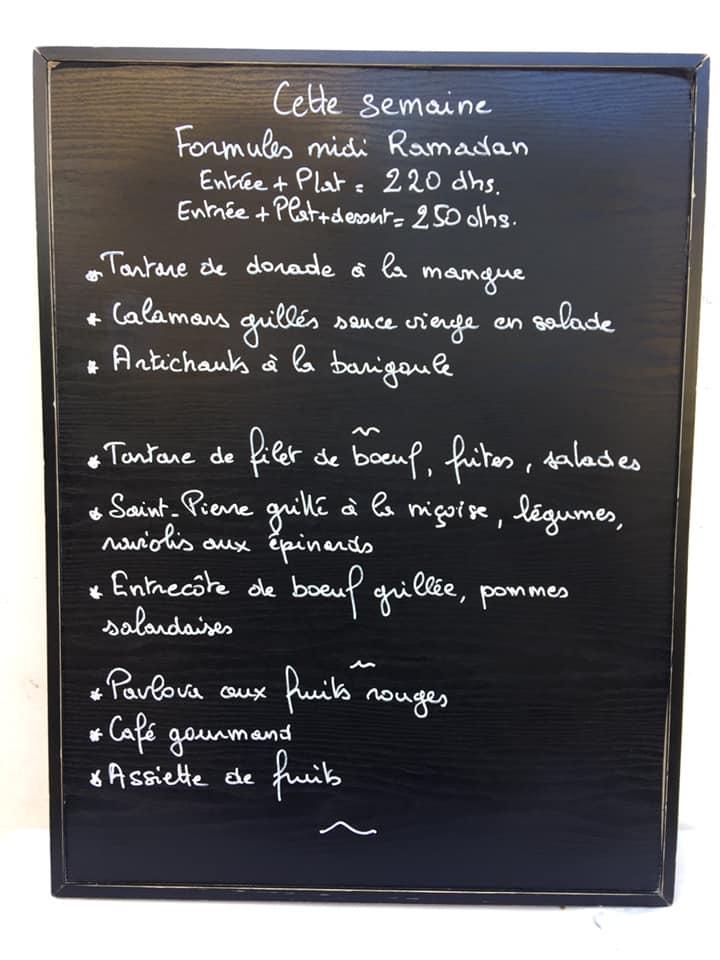 Cette semaine
Formules midi Ramadan
Entrée + Plat = 220 dhs.
Entrée + Plat + dessert = 250 dhs.
* Tartare de dorade à la mangue
* Calamars grillés sauce vierge en salade
* Artichauts à la barigoule
* Tartare de filet de boeuf, frites, salades
* Saint-Pierre grillé à la niçoise, légumes,
raviolis aux épinards
* Entrecôte de boeuf grillée, pommes
salardaises
* Pavlova aux fruits rouges
* Café gourmand
* Assiette de fruits